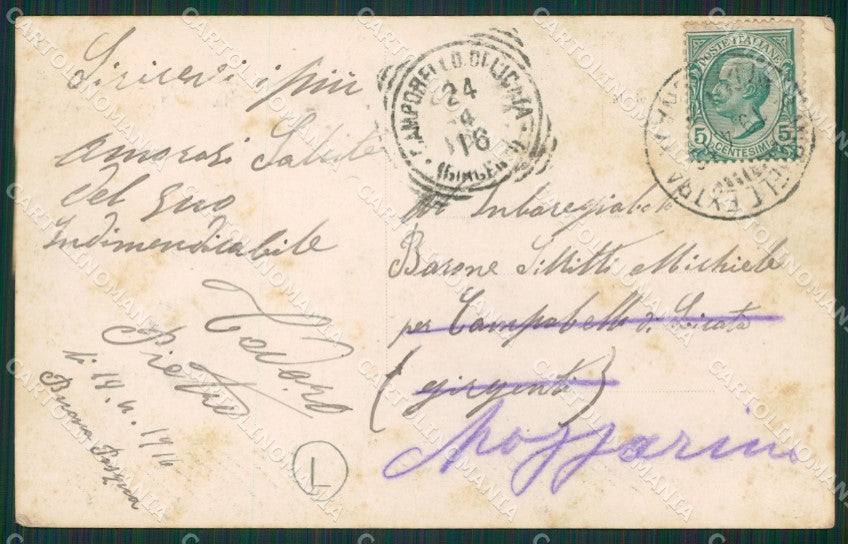 Si ricevi i più
amorosi Salute
del suo
Indimendicabile
Pietro
li 19.4.1916
Buona Pasqua
L
CAMPOBELLO DI LICATA
24
4
16
(GIRGENTI)
POSTE ITALIANE
5 5
CENTESIMI
Barone Sillitti Michiele
per Campobello di Licata
(girgenti)
Mazzarino
CARTOLINOMANIA